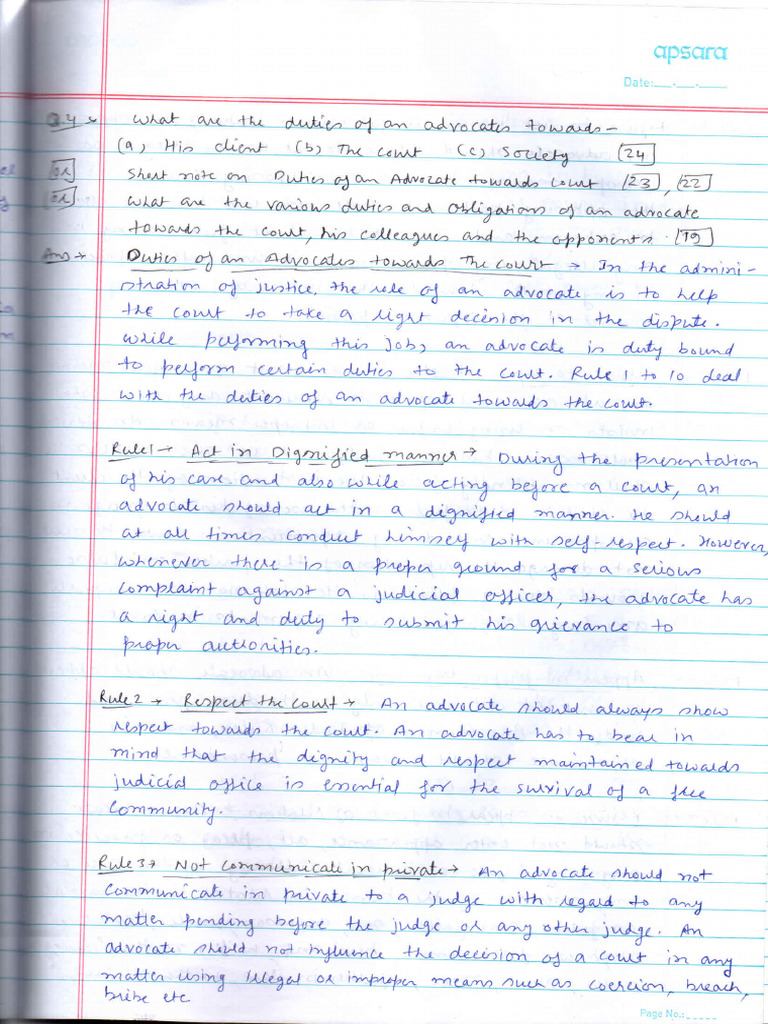 apsara
Date:__.__.____
Q.4 → What are the duties of an advocates towards –
(a) His client (b) The court (c) Society [24]
[or] Short note on Duties of an Advocate towards court [23], [22]
[or] what are the various duties and obligations of an advocate
towards the court, his colleagues and the opponents. [19]
Ans → Duties of an Advocates towards The court → In the admini-
stration of justice, the role of an advocate is to help
the court to take a right decision in the dispute.
while performing this job, an advocate is duty bound
to perform certain duties to the court. Rule 1 to 10 deal
with the duties of an advocate towards the court.
Rule 1 → Act in Dignified manner → During the presentation
of his case and also while acting before a court, an
advocate should act in a dignified manner. He should
at all times conduct himself with self-respect. However,
whenever there is a proper ground for a serious
complaint against a judicial officer, the advocate has
a right and duty to submit his grievance to
proper authorities.
Rule 2 → Respect the court → An advocate should always show
respect towards the court. An advocate has to bear in
mind that the dignity and respect maintained towards
judicial office is essential for the survival of a free
Community.
Rule 3 → Not communicate in private → An advocate should not
communicate in private to a judge with regard to any
matter pending before the judge or any other judge. An
advocate should not influence the decision of a court in any
matter using illegal or improper means such as coercion, breach,
bribe etc
Page No.:_____